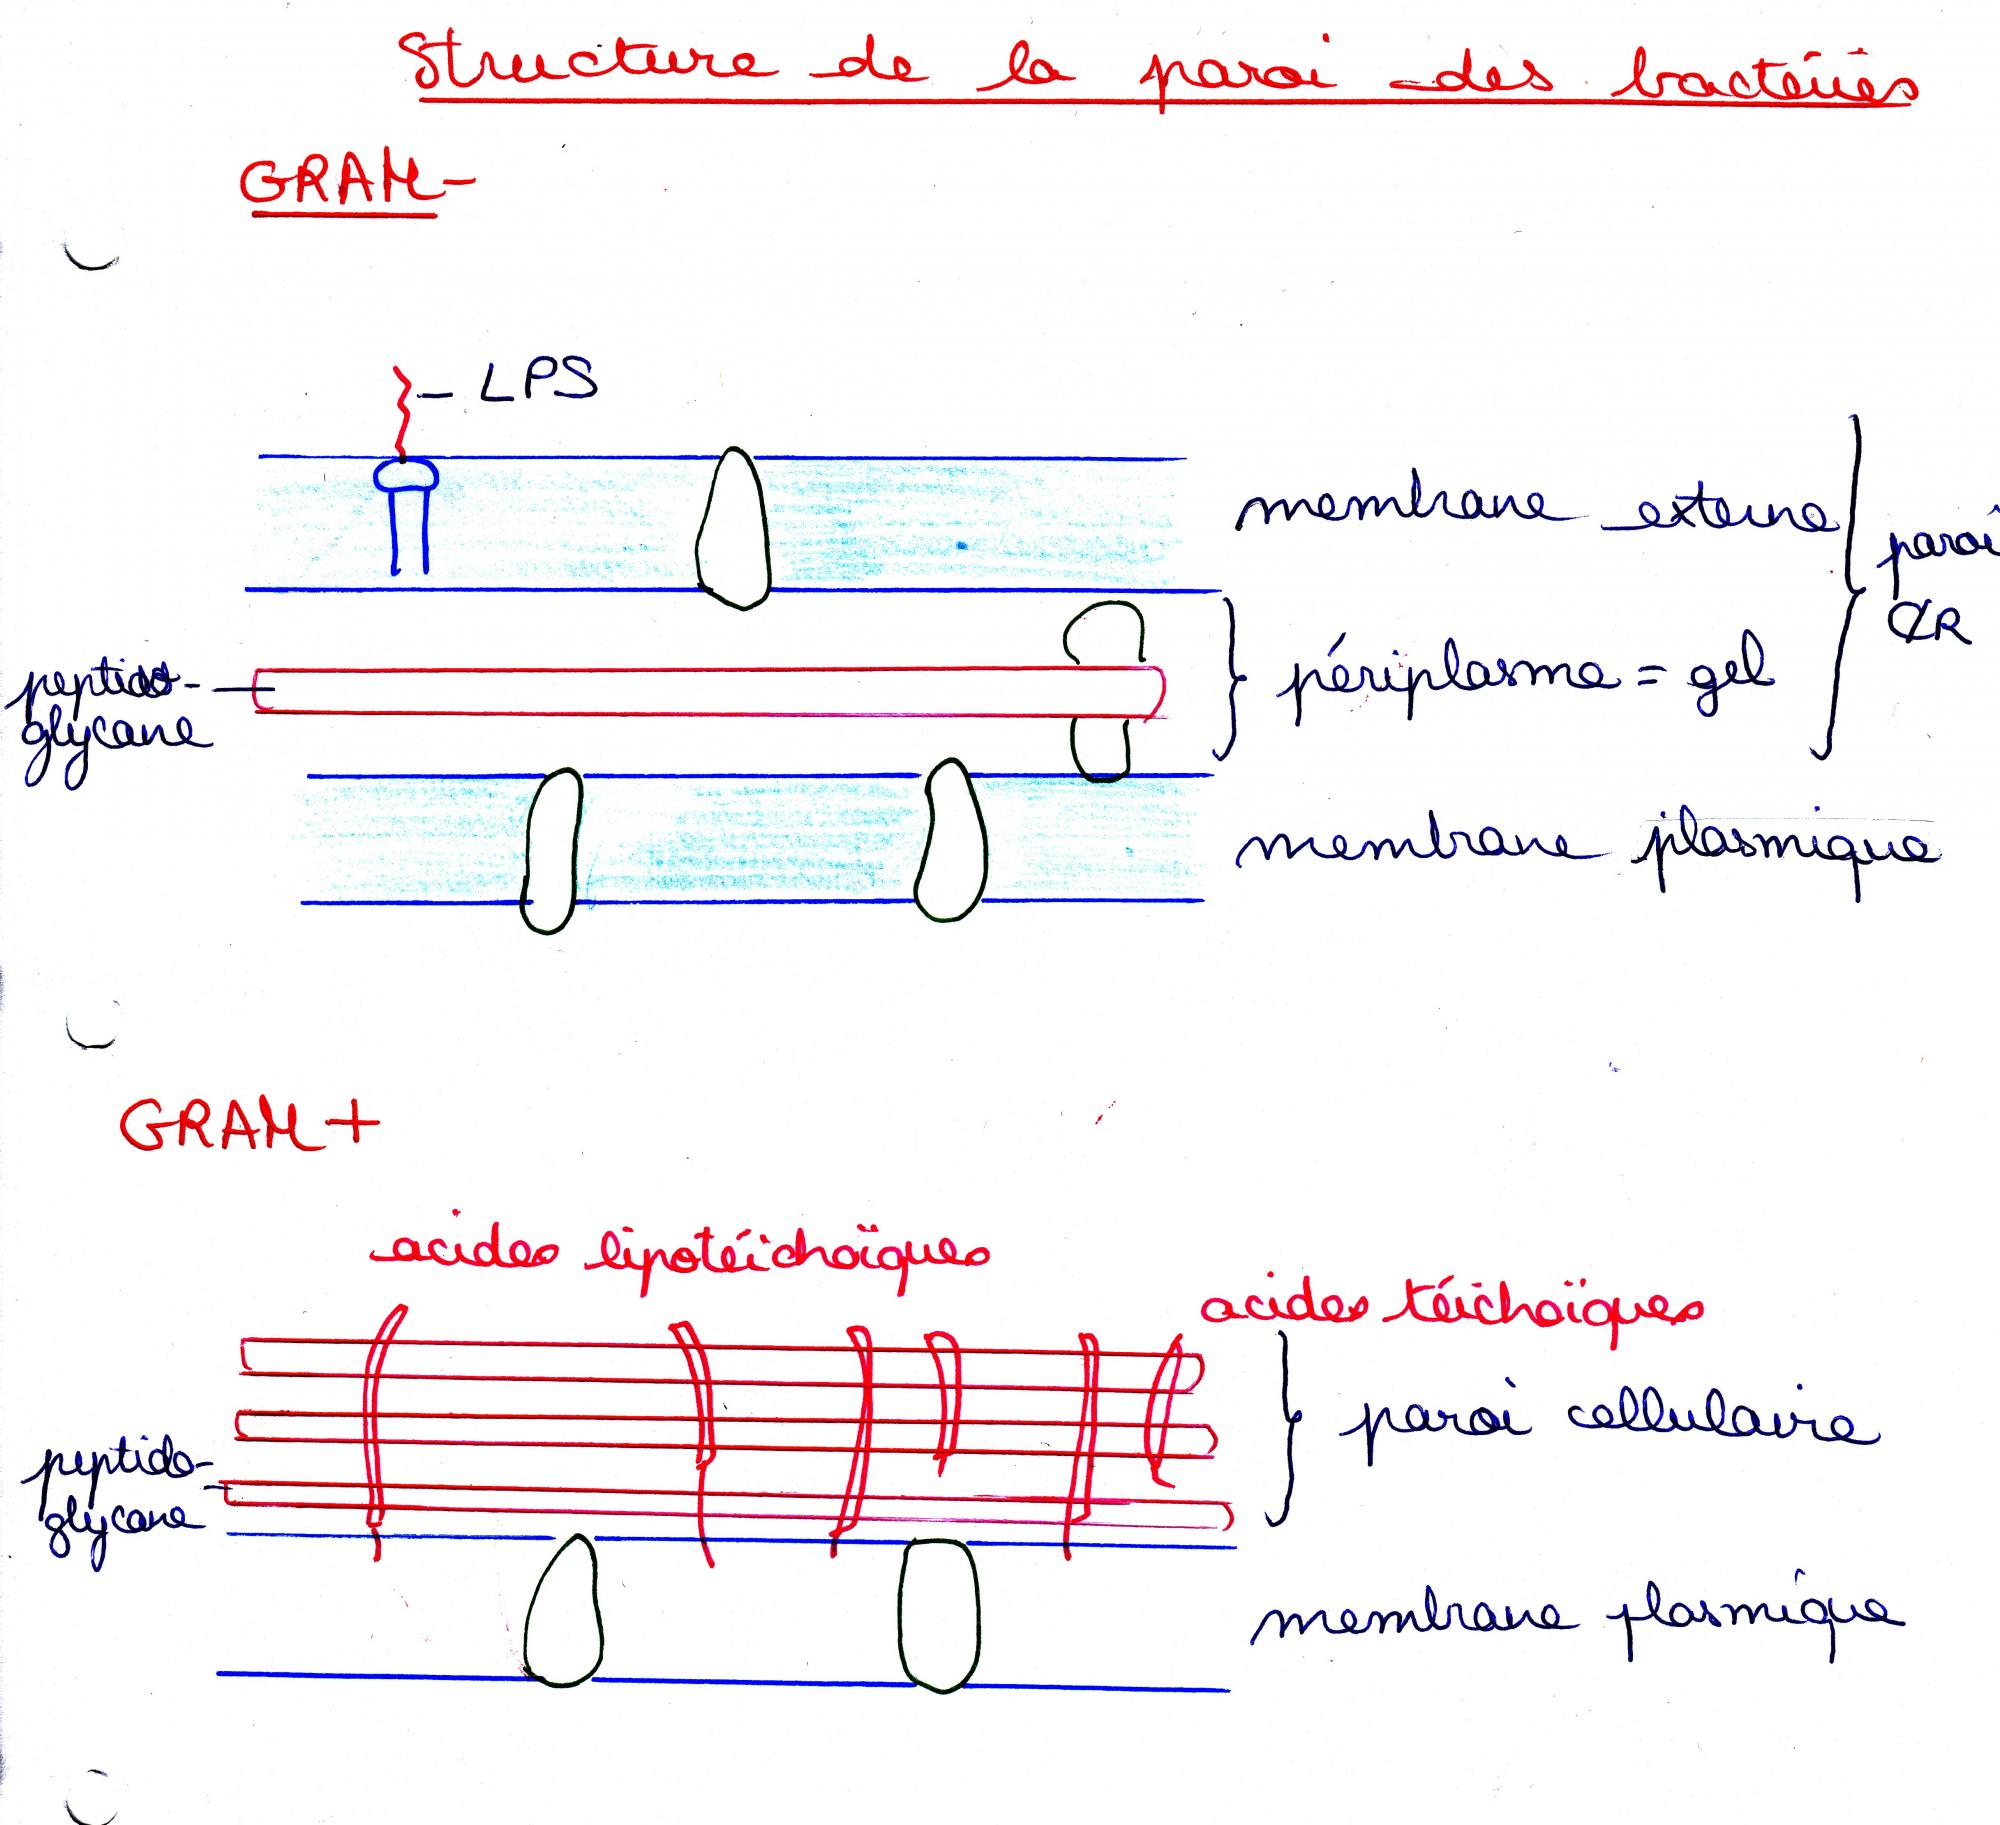 Structure de la paroi des bactéries
GRAM-
LPS
membrane externe
paroi
peptido-
glycane
périplasme = gel
membrane plasmique
GRAM+
acides lipotéichoïques
acides téichoïques
paroi cellulaire
peptido-
glycane
membrane plasmique